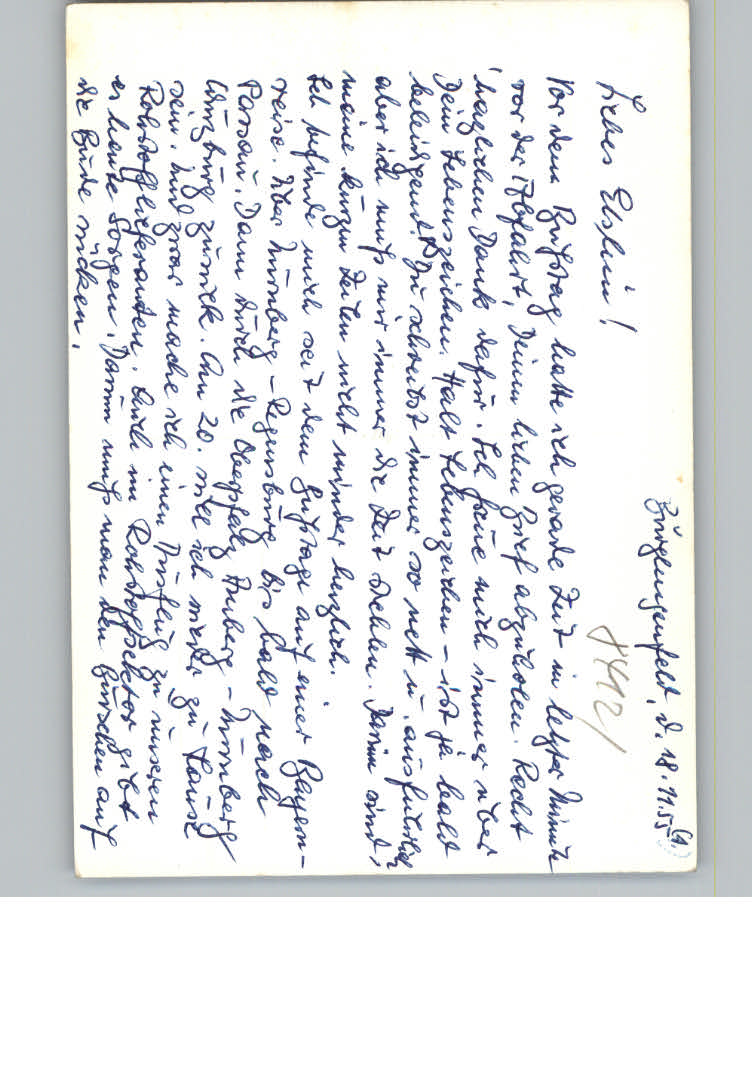 Burglengenfeld, d. 18.11.55 (1.)
8412/
Liebes Elslein!
Vor dem Bußtag hatte ich gerade Zeit in letzter Minute
vor der Abfahrt, Deinen lieben Brief abzuholen. Recht
herzlichen Dank dafür. Ich freue mich immer über
Dein Lebenszeichen. Halt Lebenszeichen – ist ja bald
beleidigend. Du schreibst immer so nett u. ausführlich
aber ich muß mir immer die Zeit stehlen. Darum sind
meine kurzen Zeilen nicht minder herzlich.
Ich befinde mich seit dem Bußtage auf einer Bayern-
reise. Über Nürnberg – Regensburg bis bald nach
Passau. Dann durch die Oberpfalz Amberg – Nürnberg
Würzburg zurück. Am 20. will ich wieder zu Hause
sein. Und zwar mache ich einen Ausflug zu unseren
Rohstofflieferanten. Auch im Rohstoffsektor gibt
es heute Sorgen. Darum muß man den Burschen auf
die Bude rücken.